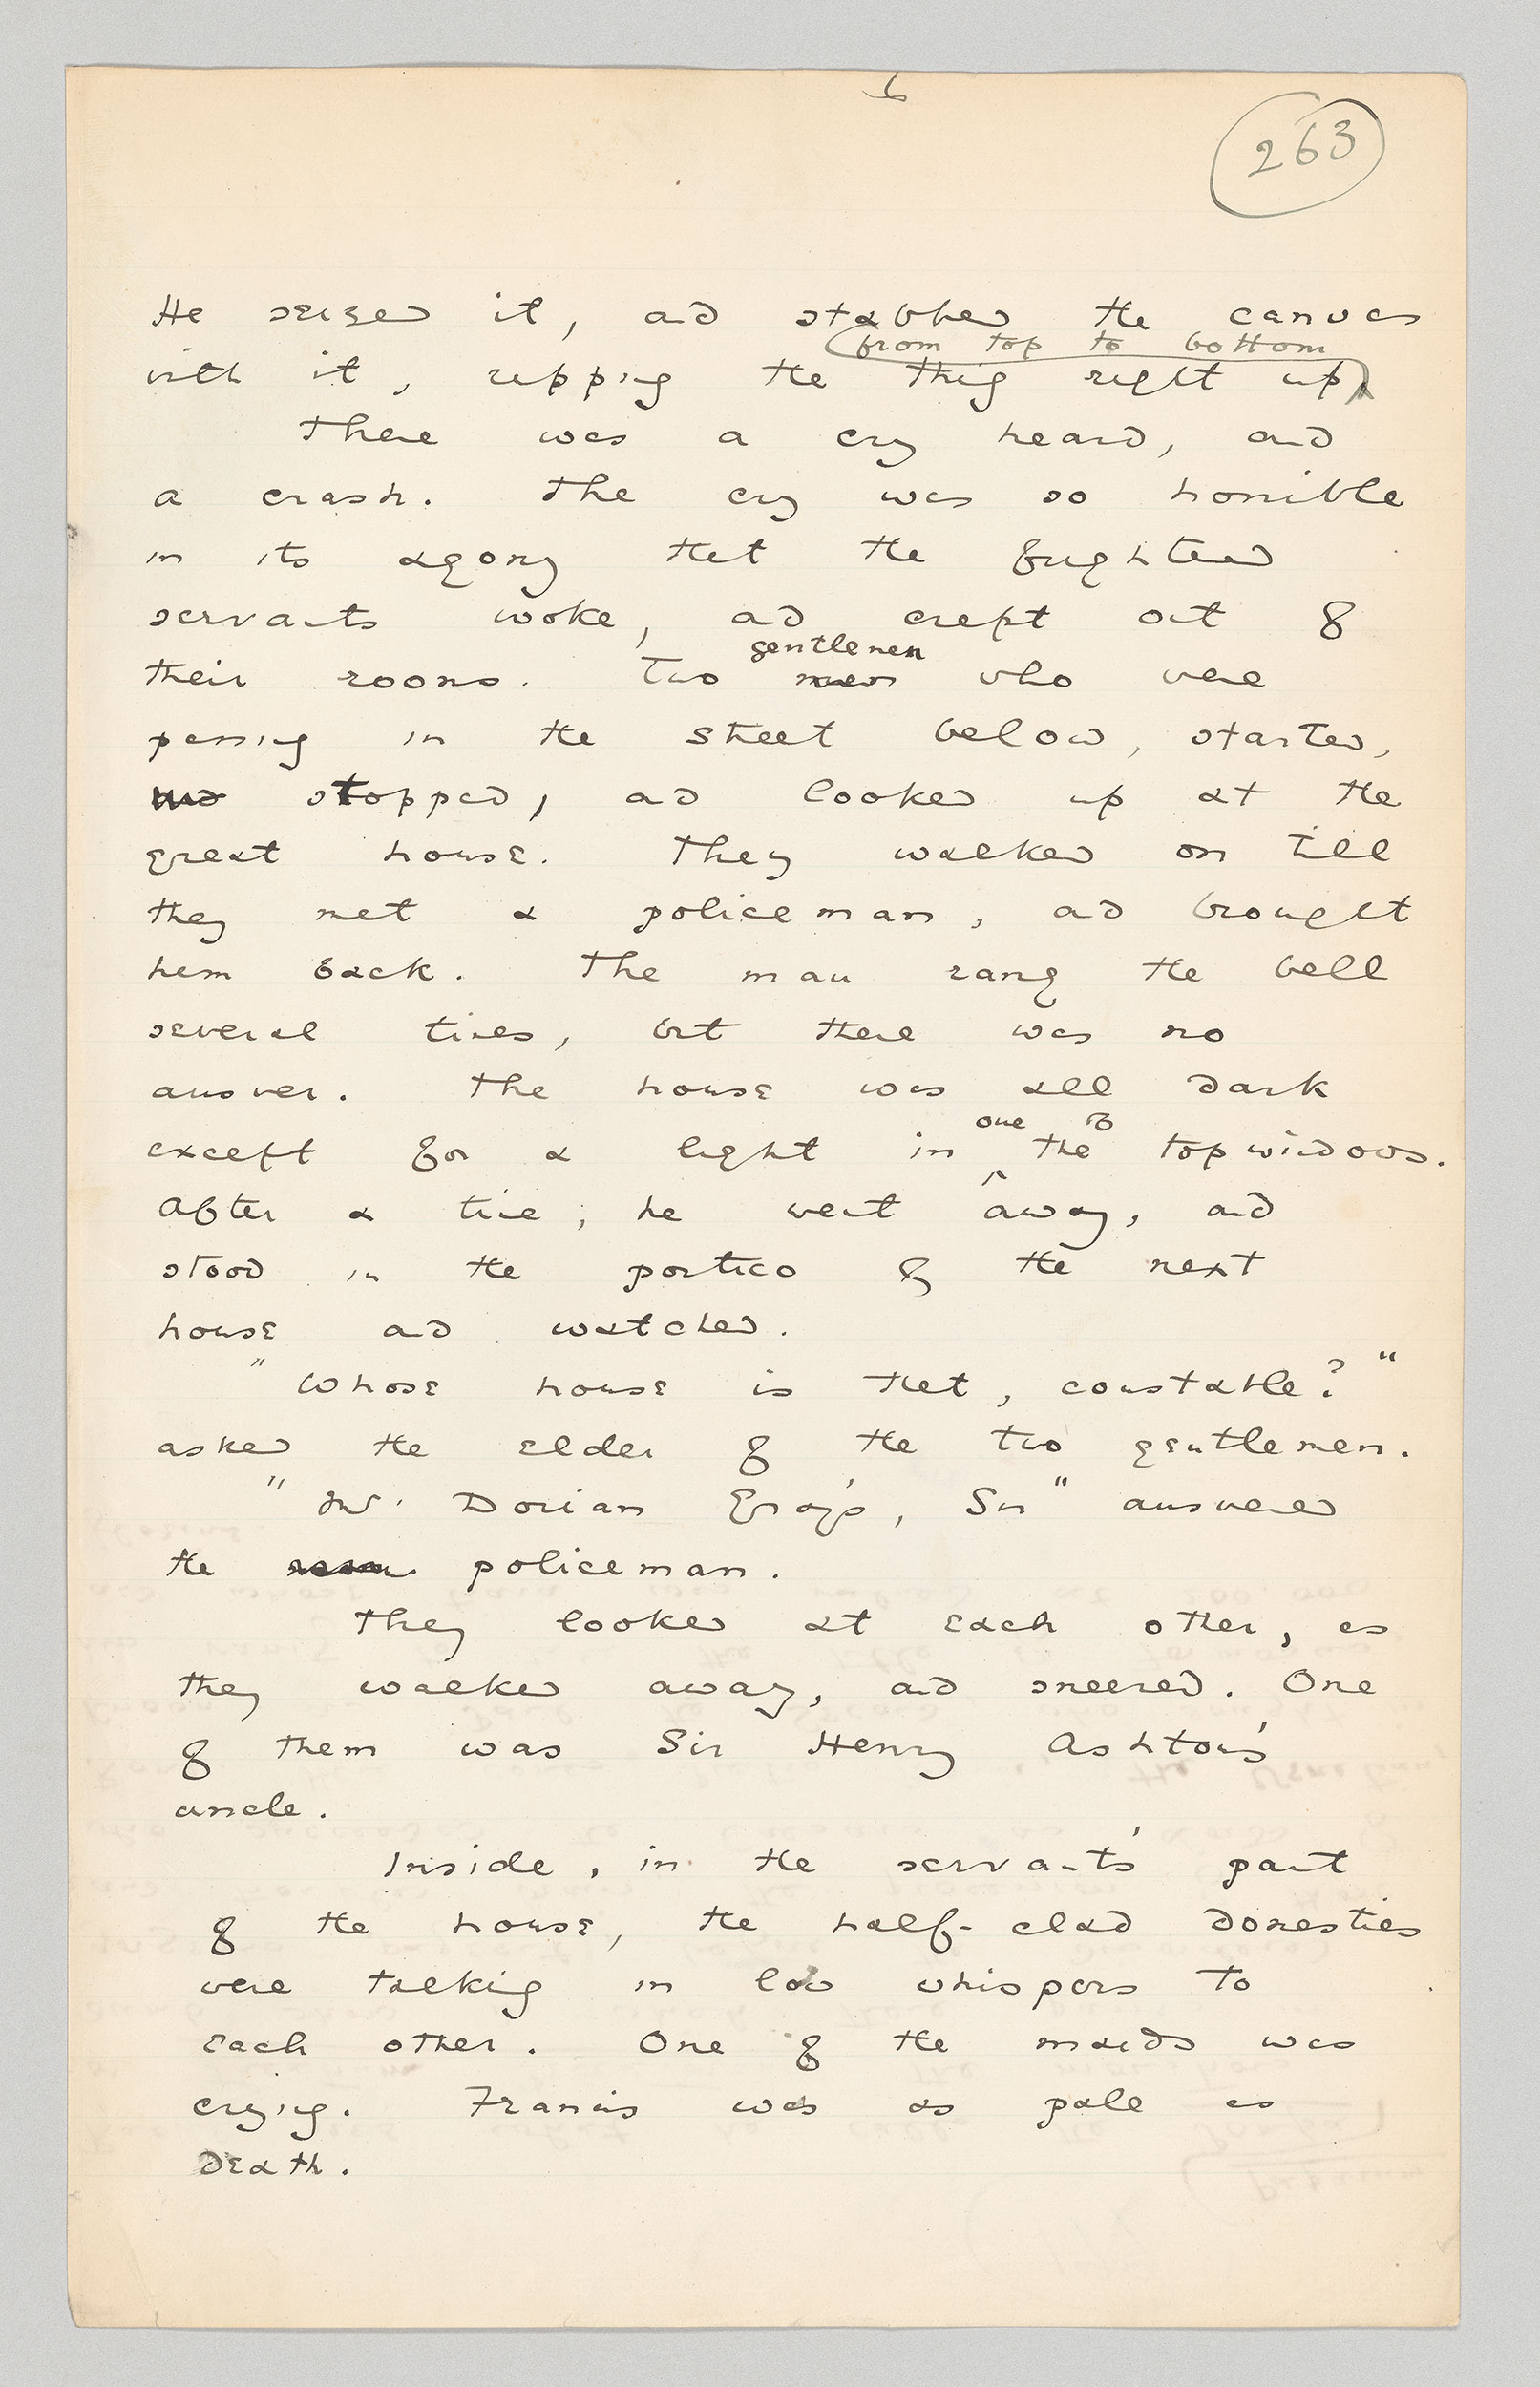 263
He seized it, and stabbed the canvas
from top to bottom
with it, ripping the thing right up
There was a cry heard, and
a crash. The cry was so horrible
in its agony that the frightened
servants woke, and crept out of
gentlemen
their rooms. Two men who were
passing in the street below, started,
and stopped, and looked up at the
great house. They walked on till
they met a policeman, and brought
him back. The man rang the bell
several times, but there was no
answer. The house was all dark
one of
except for a light in the top windows.
After a time, he went away, and
stood in the portico of the next
house and watched.
"Whose house is that, constable?"
asked the elder of the two gentlemen.
"Mr. Dorian Gray's, Sir" answered
the policeman.
They looked at each other, as
they walked away, and sneered. One
of them was Sir Henry Ashton's
uncle.
Inside, in the servants' part
of the house, the half-clad domestics
were talking in low whispers to
each other. One of the maids was
crying. Francis was as pale as
death.